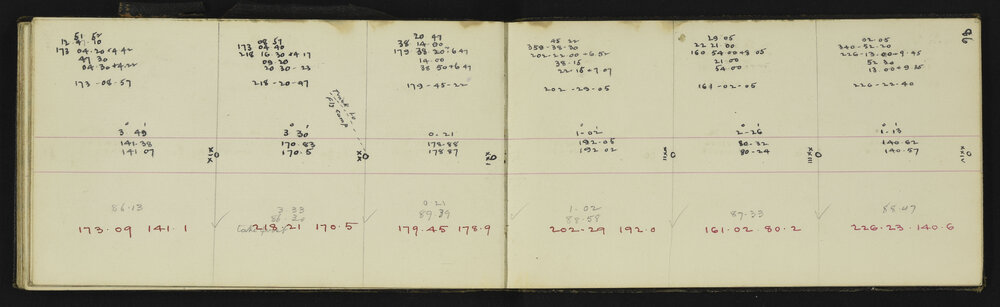 51 52
12 41 10
173 04.20 + 4.42
47 30
04.30 + 4.22
173 - 08 - 57
3° 49'
141.38
141 07
86.13
173.09 141.1
XIX
08 57
173 04 40
218 16 30 + 4.17
09 20
20 30 - 23
218 - 20 - 47
3° 30'
170.83
170.5
3 33
86.20
218.21 170.5
XX
20 47
38 14.00
179 38 20 + 6.47
14.00
38 50 + 6.47
179 - 45 - 22
0.21
178.88
178 87
0.21
89.39
179.45 178.9
XXI
45 22
359 - 38 - 30
202 - 22 00 + 6.52
38 - 15
22 - 15 + 7 07
202 - 29 - 05
1° - 02'
192.05
192 02
1 - 02
88 - 58
202 - 29 192.0
XXII
29 05
22 21 00
160 54.00 + 8.05
21 00
54.00
161 - 02 - 05
2° - 26'
80 - 32
80 - 24
87.33
161.02 80.2
XXIII
86
02.05
340 - 52.20
226 - 13.00 + 9.45
52 30
13.00 + 9.35
226 - 22 - 40
1° - 13'
140.62
140.57
88.47
226.23 140.6
XXIV